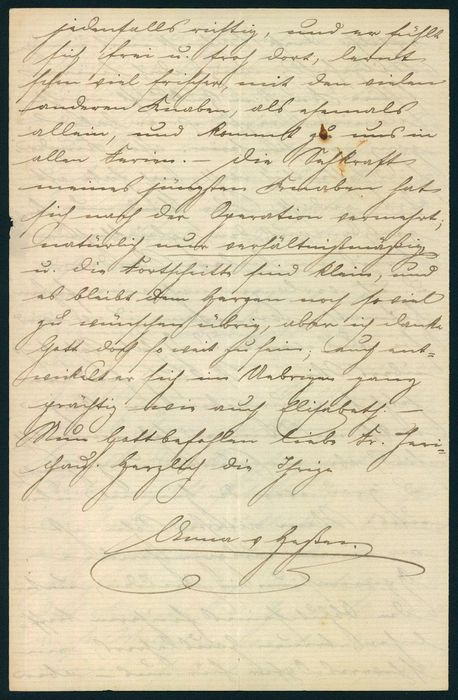 jedenfalls richtig, und er fühlt
sich frei u. froh dort, lernt
schon viel frischer, mit den vielen
anderen Knaben, als ehemals
allein, und kommt zu uns in
allen Ferien. – Die Sehkraft
meines jüngsten Knaben hat
sich nach der Operation vermehrt,
natürlich nur verhältnißmäßig
u. die Fortschritte sind klein, und
es bleibt dem Herzen noch so viel
zu wünschen übrig, aber ich danke
Gott doch so weit zu sein; auch ent-
wickelt er sich im Uebrigen ganz
prächtig wie auch Elisabeth. –
Nun Gottbefohlen liebe Fr. Jeri-
chau. Herzlich die Ihrige
Anna v Hessen.